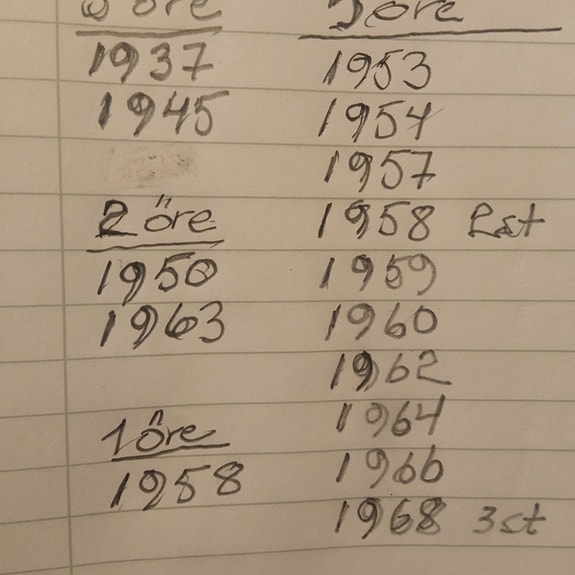 öre
1937
1945
2 öre
1950
1963
1 öre
1958
5 öre
1953
1954
1957
1958 2st
1959
1960
1962
1964
1966
1968 3st